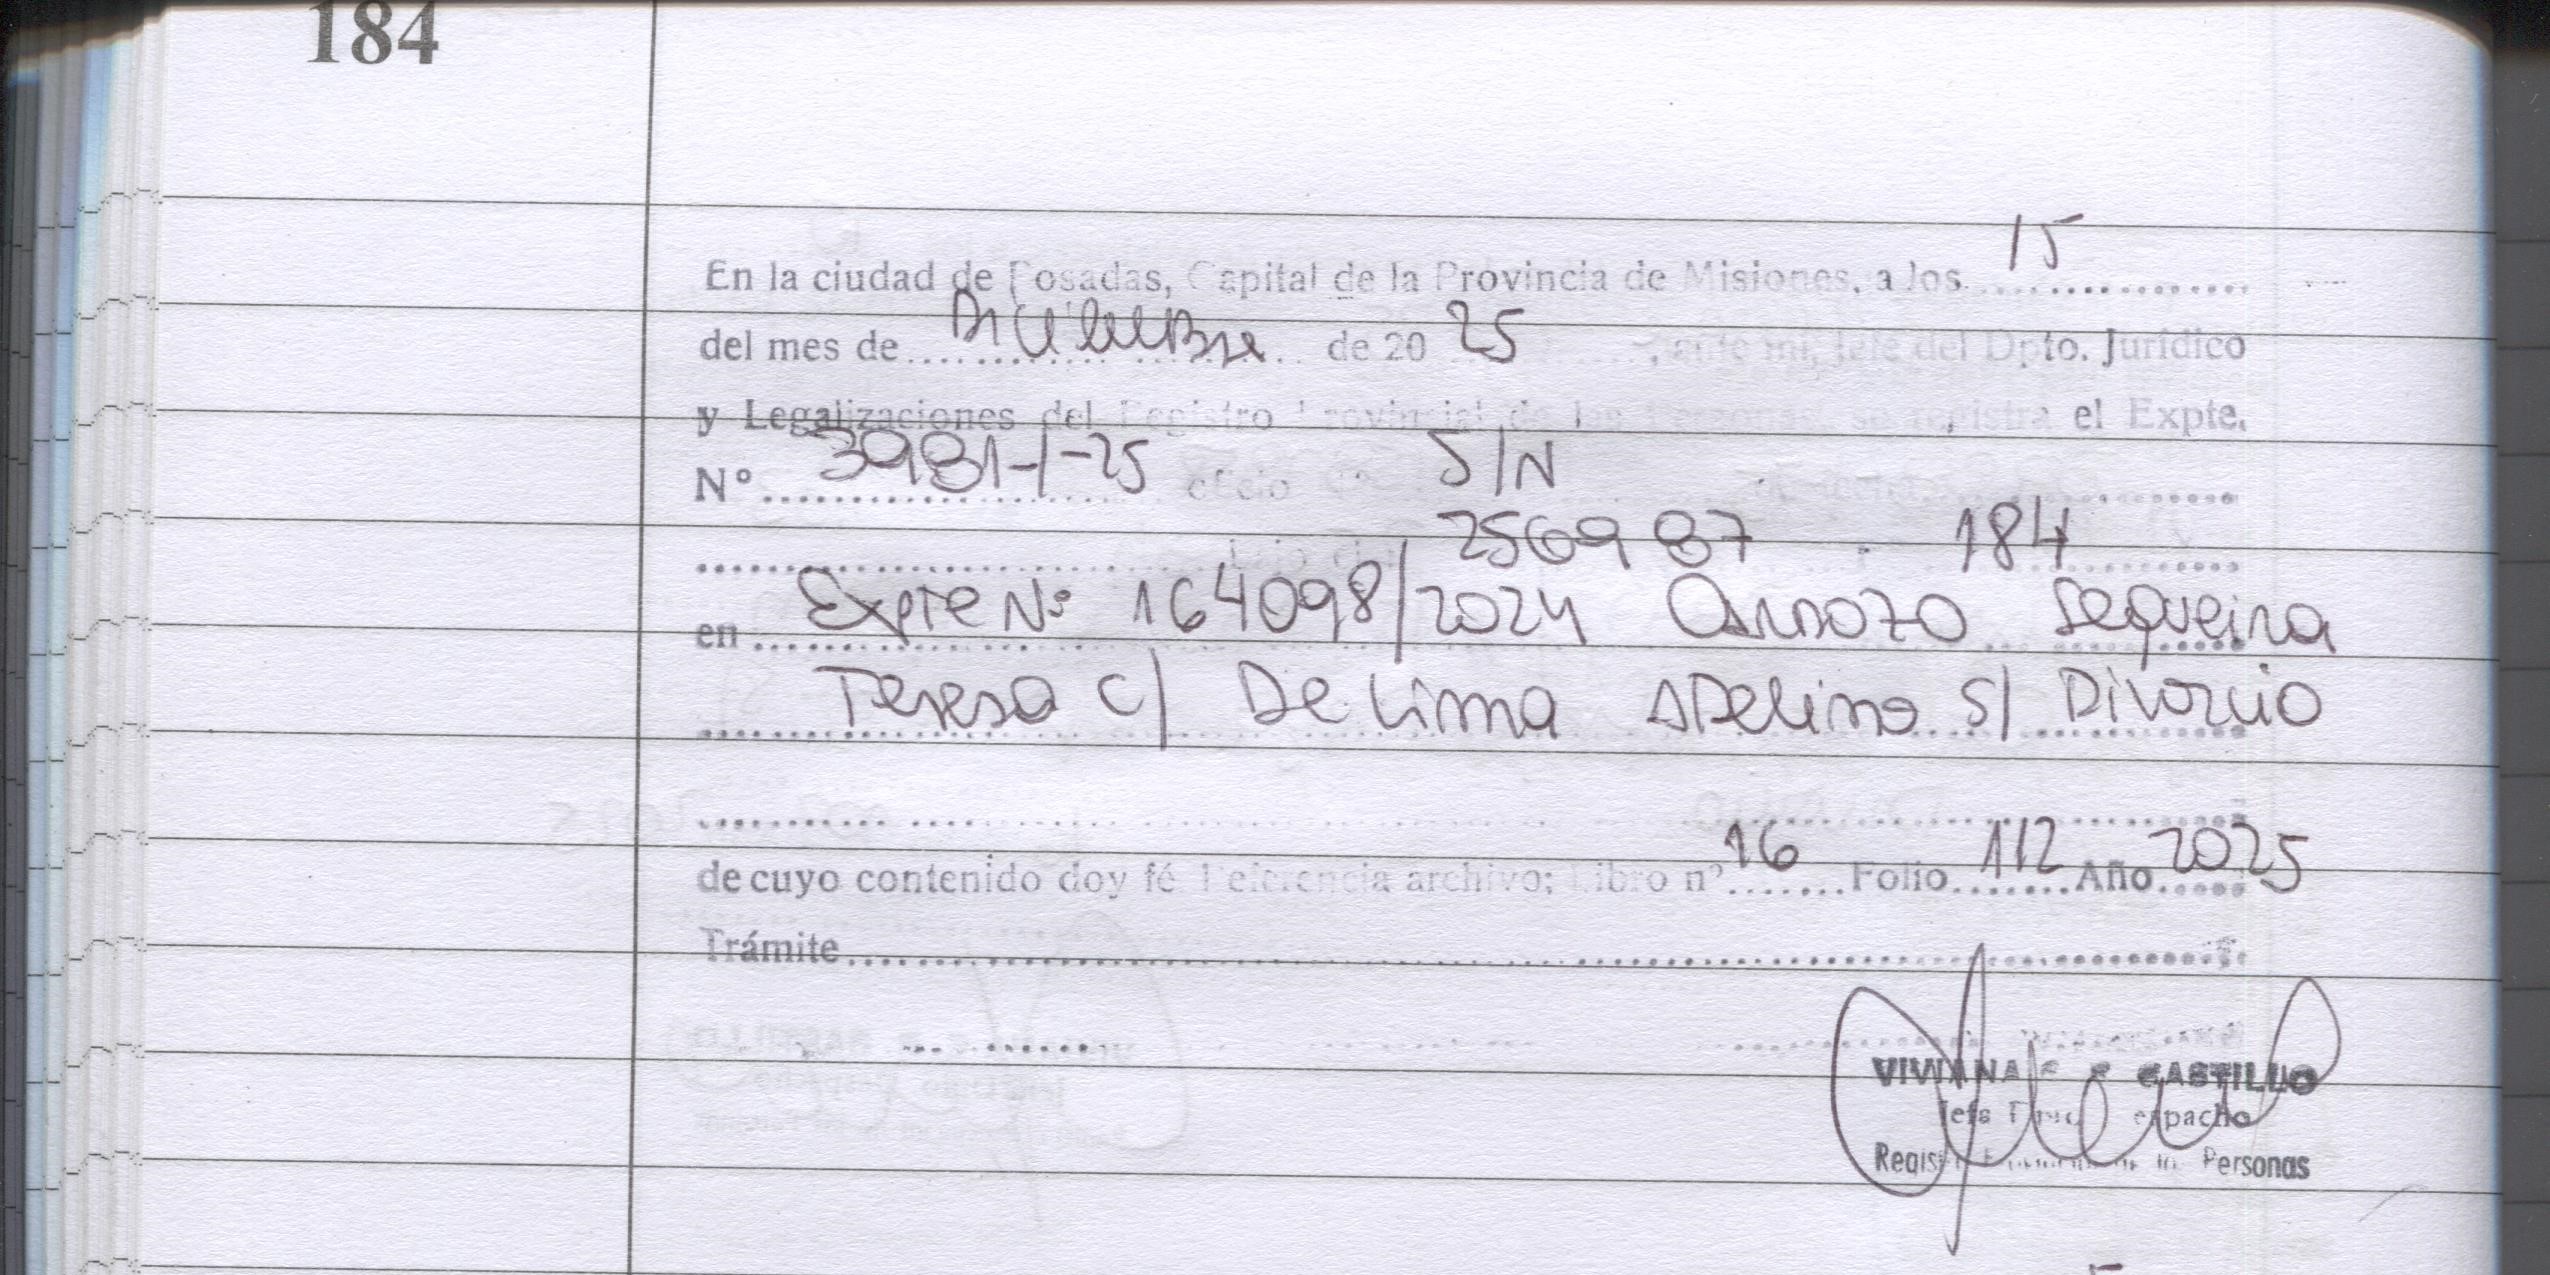 184
En la ciudad de Posadas, Capital de la Provincia de Misiones, a los 15
del mes de Diciembre de 20 25, ante mi, Jefe del Dpto. Jurídico
y Legalizaciones del Registro Provincial de las Personas, se registra el Expte.
Nº 3981-1-25 oficio S/N
256987 184
en Expte Nº 164098/2024 Sequeira
Teresa c/ De Lima Adelino S/ Divorcio
de cuyo contenido doy fé Referencia archivo; Libro nº 16 Folio 112 Año 2025
Trámite
VIVIANA CASTILLO
Jefa Despacho
Registro de las Personas